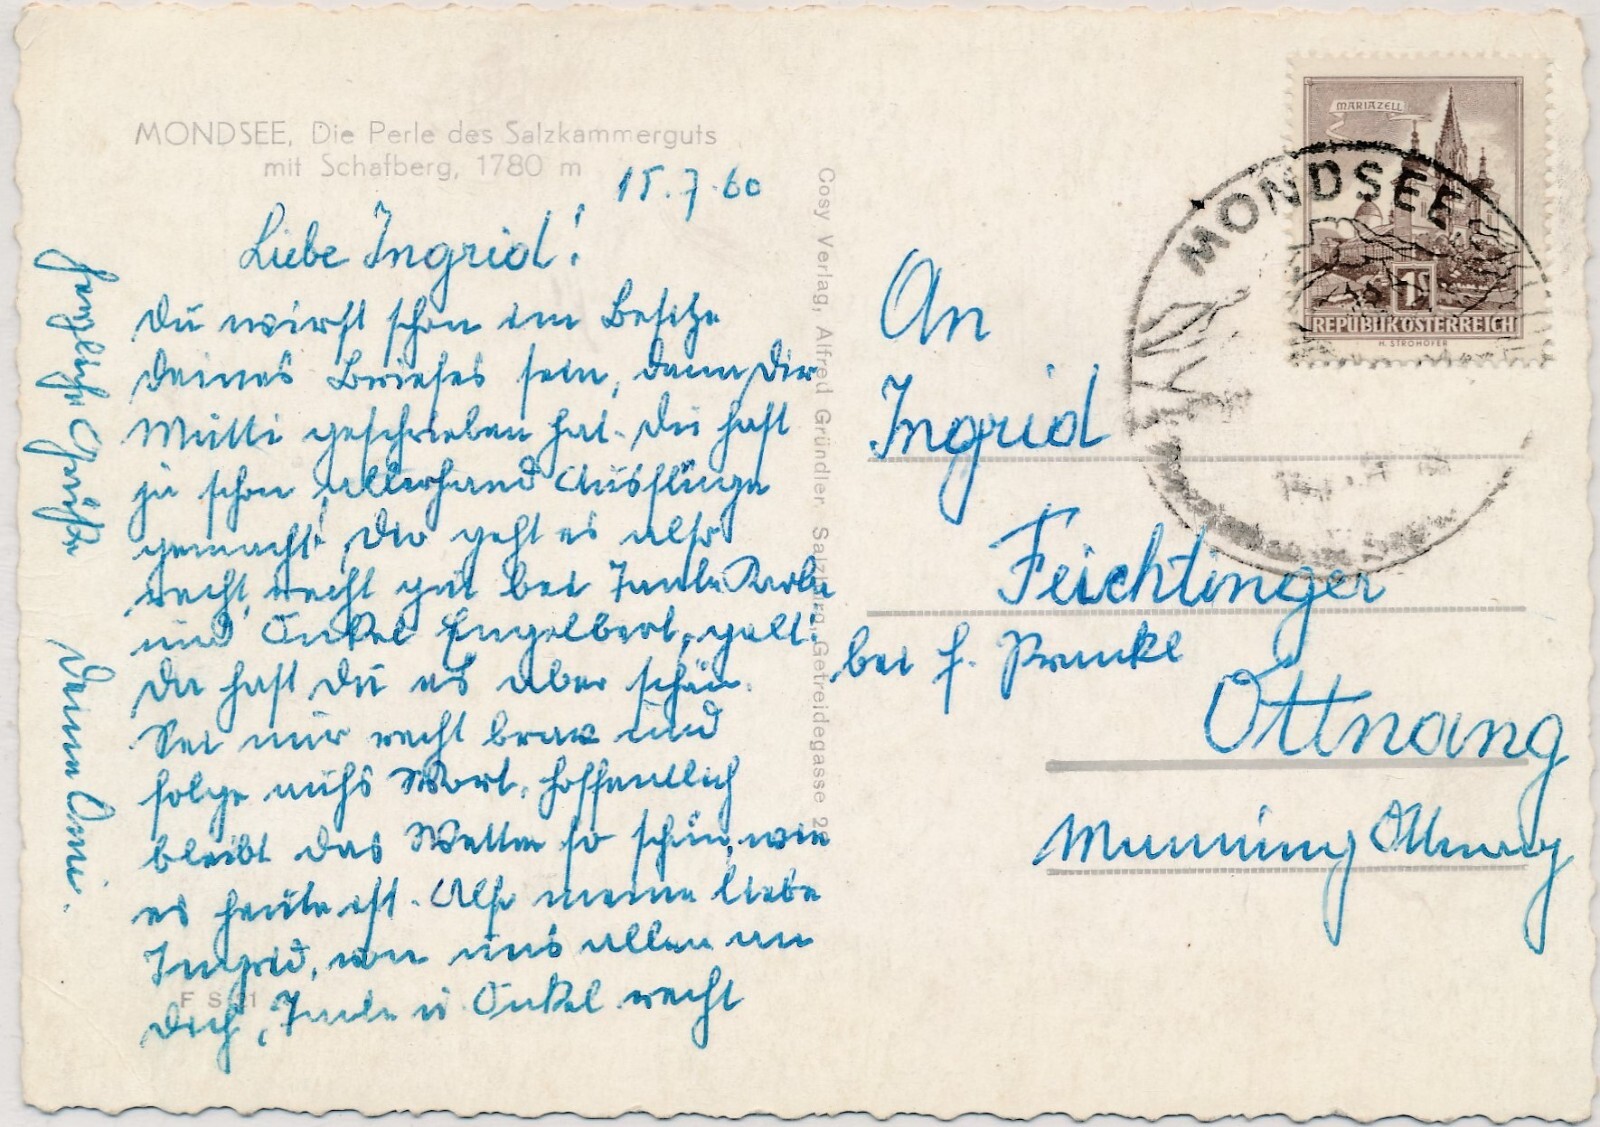 MONDSEE, Die Perle des Salzkammerguts
mit Schafberg, 1780 m
15.7.60
Liebe Ingrid!
Du wirst schon im Besitze
Deines Briefes sein, denn Dir
Mutti geschrieben hat. Du hast
ja schon allerhand Ausflüge
gemacht! Dir geht es also
recht, recht gut bei Tante Karla
und Onkel Engelbert, gelt!
Da hast Du es aber schön.
Sei nur recht brav und
folge aufs Wort. Hoffentlich
bleibt das Wetter so schön, wie
es heute ist. Also meine liebe
Ingrid, von uns allen an
Dich, Tante u Onkel recht
herzliche Grüße
Deine Omi.
F S 21
Cosy Verlag, Alfred Gründler, Salzburg, Getreidegasse 2
MARIAZELL
1 S
REPUBLIK ÖSTERREICH
H. STROHOFER
MONDSEE
An
Ingrid
Feichtinger
bei F.
Ottnang
Manning Ottnang